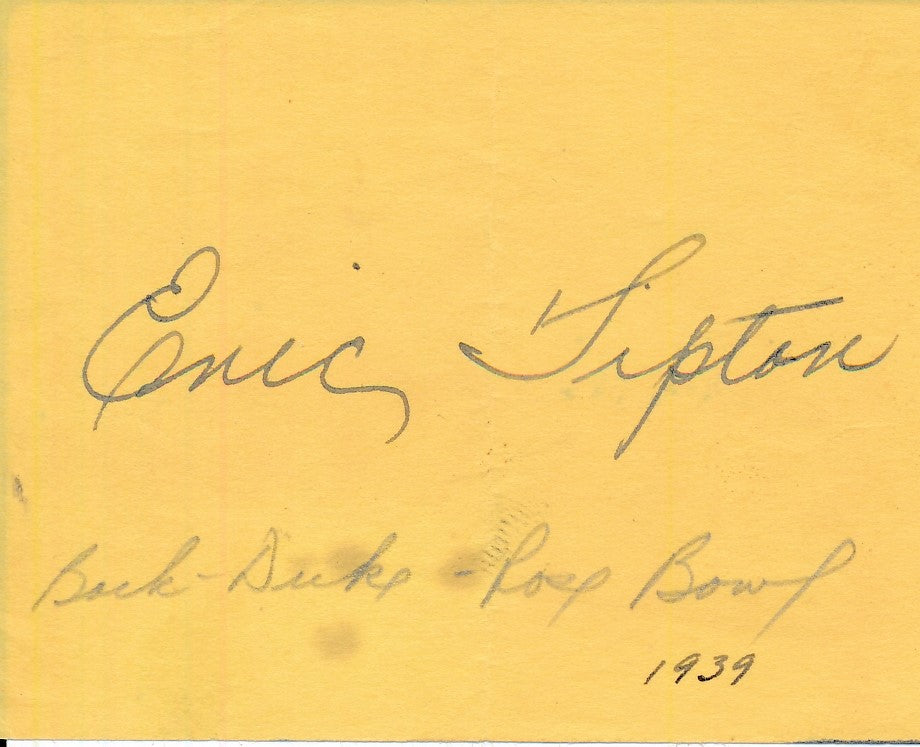 Eric Tipton
Back - Duke - Rose Bowl
1939